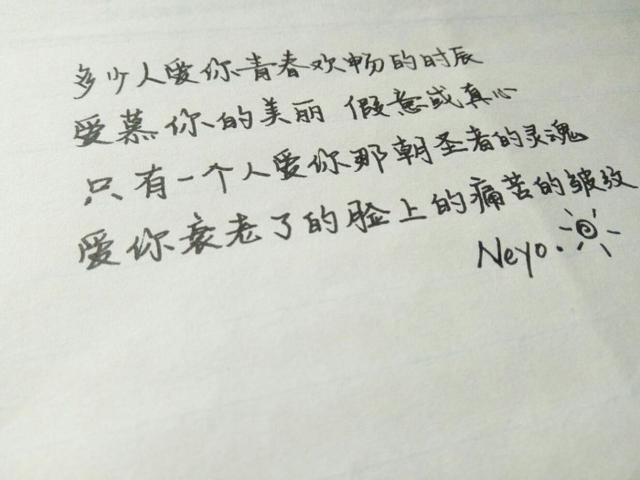 多少人爱你青春欢畅的时辰
爱慕你的美丽 假意或真心
只有一个人爱你那朝圣者的灵魂
爱你衰老了的脸上的痛苦的皱纹
Neyo.